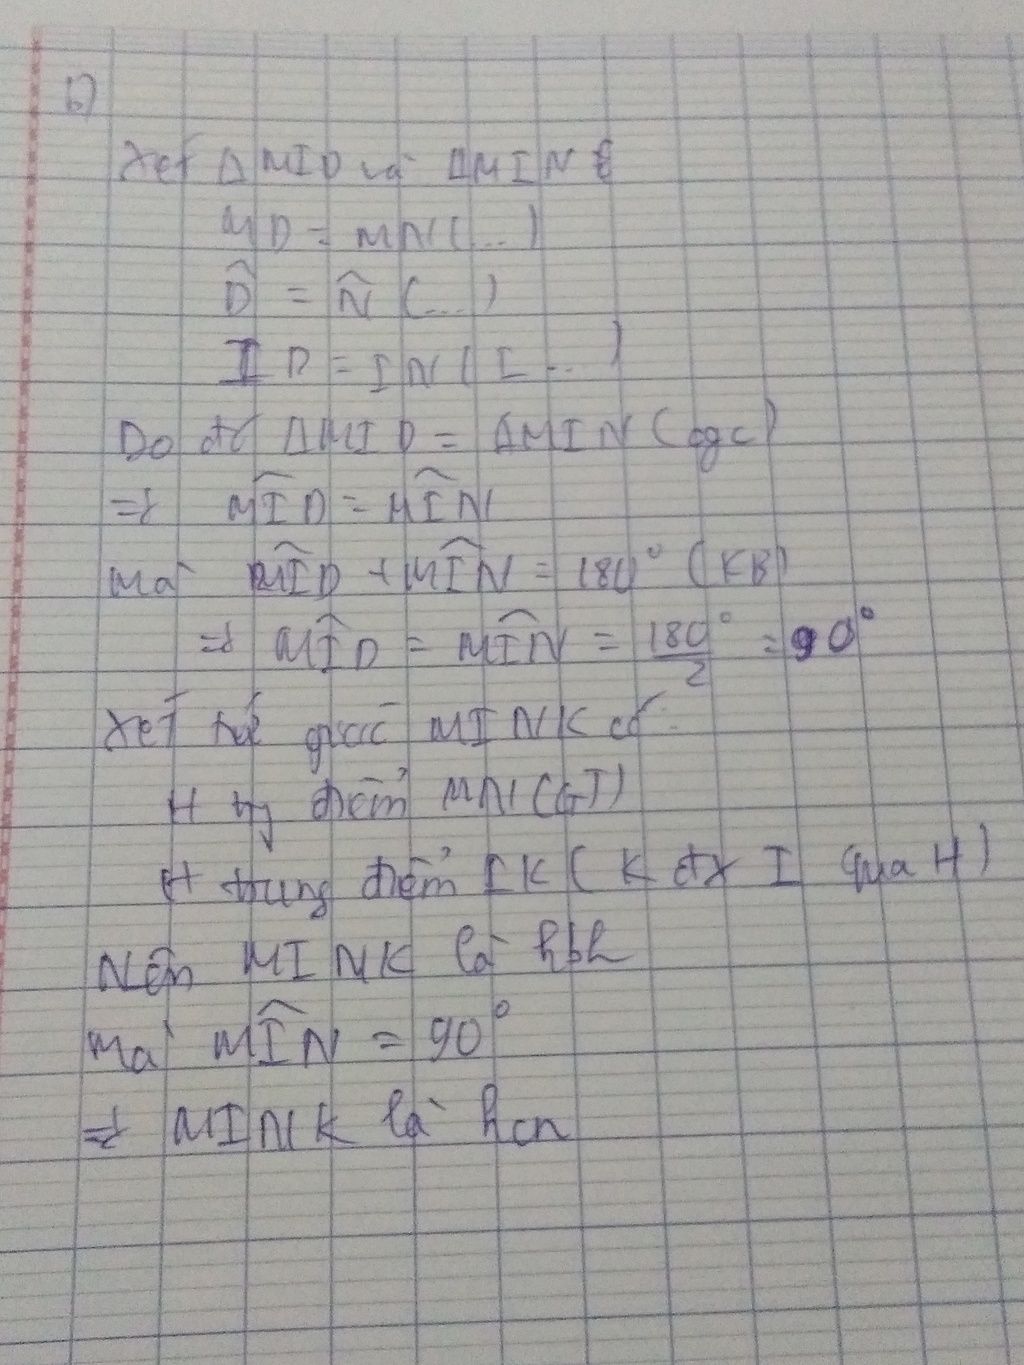 b)
Xét ΔMID và ΔMIN có
MD = MN (...)
D̂ = N̂ (...)
ID = IN (I ...)
Do đó ΔMID = ΔMIN (cgc)
=> MÎD = MÎN
Mà MÎD + MÎN = 180° (KB)
=> MÎD = MÎN = 180°/2 = 90°
Xét tứ giác MINK có:
H trg điểm MN (GT)
H trung điểm IK (K đx I qua H)
Nên MINK là hbh
Mà MÎN = 90°
=> MINK là hcn